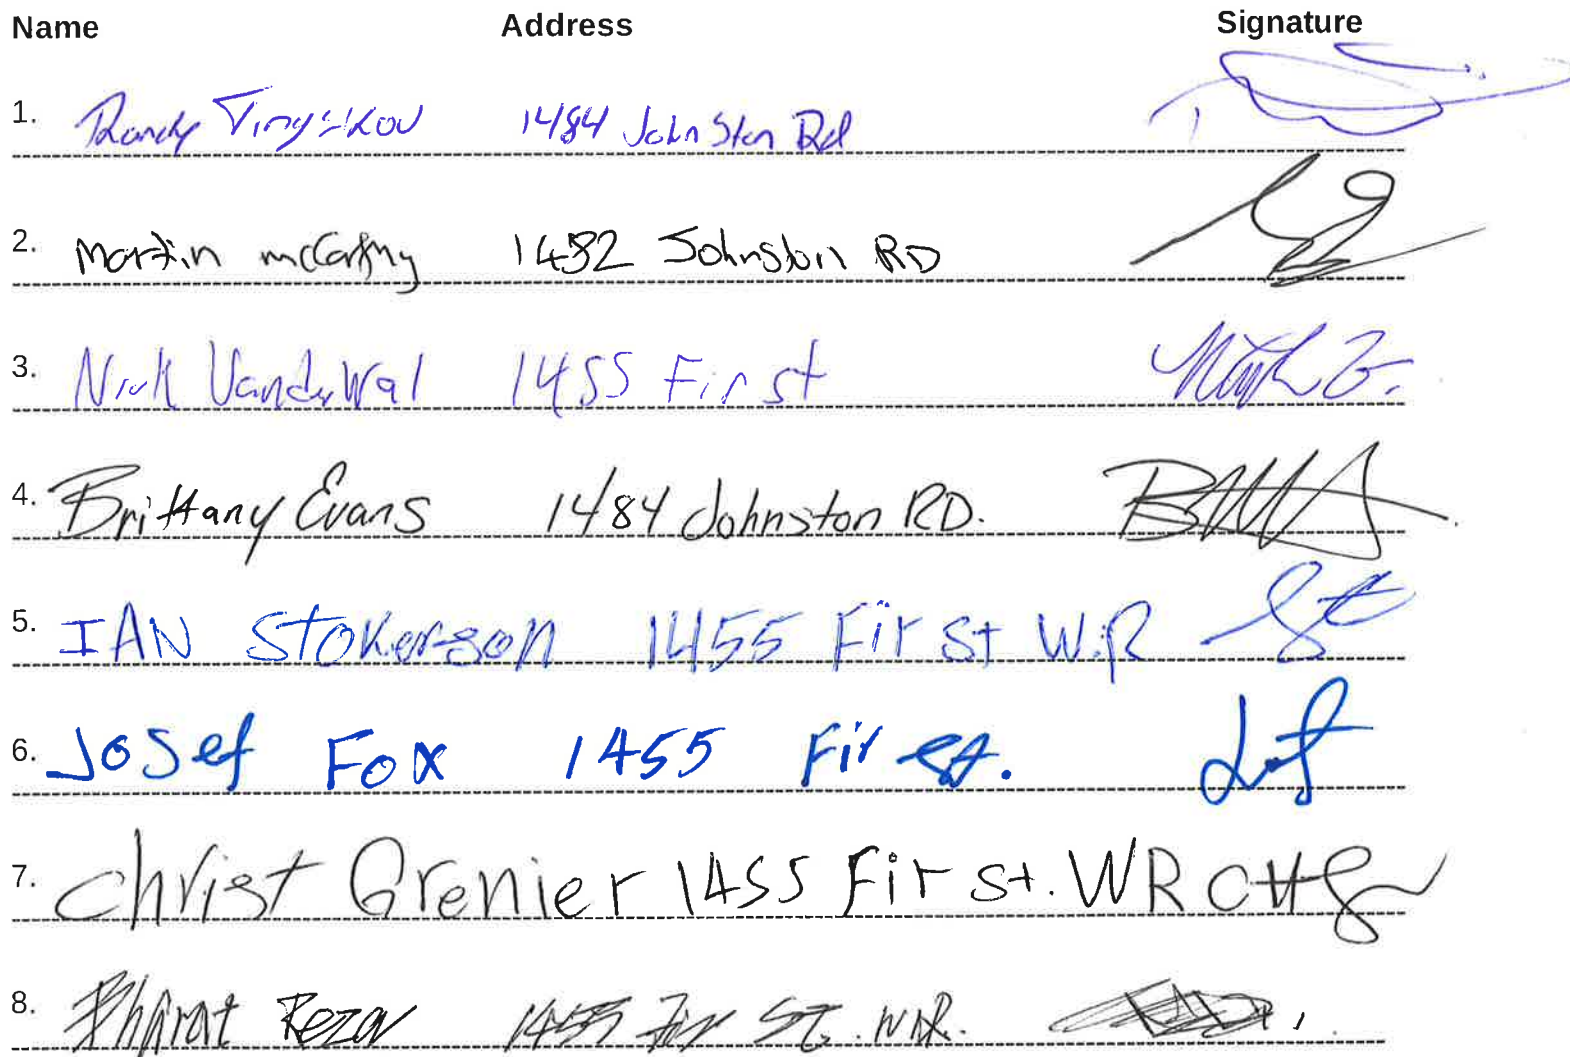 Name Address Signature
1. Randy 1484 Johnston Rd
2. Martin mcCarthy 1482 Johnston RD
3. Nick VanderWal 1455 First
4. Brittany Evans 1484 Johnston RD.
5. IAN Stokerson 1455 Fir St W.R
6. Josef Fox 1455 Fir st.
7. Christ Grenier 1455 Fir St. WR CHG
8. Bharat Reza 1455 Fir St. W.R.